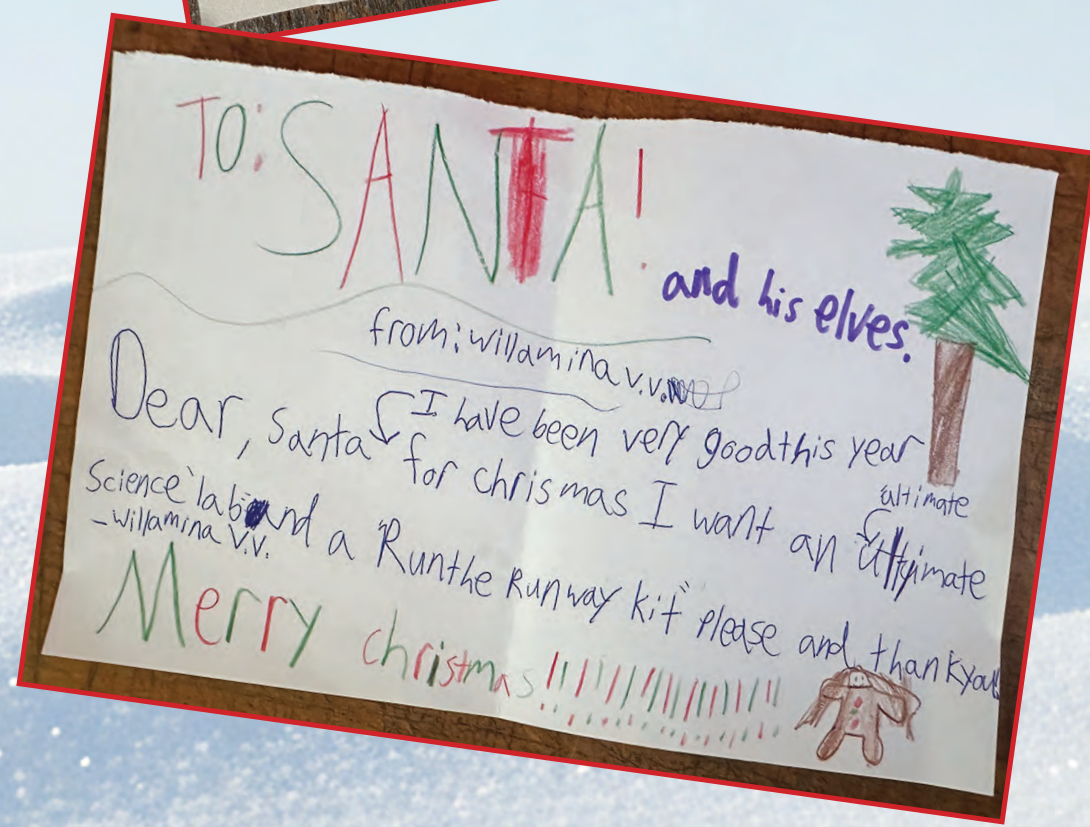 TO: SANTA!
and his elves.
from: willamina v.v.
Dear, Santa I have been very good this year
for chrismas I want an ultimate
ultimate
Science lab and a "Run the Runway kit" please and thankyou
-willamina V.V.
Merry christmas!!!!!!!!!!!!!!!!!!!